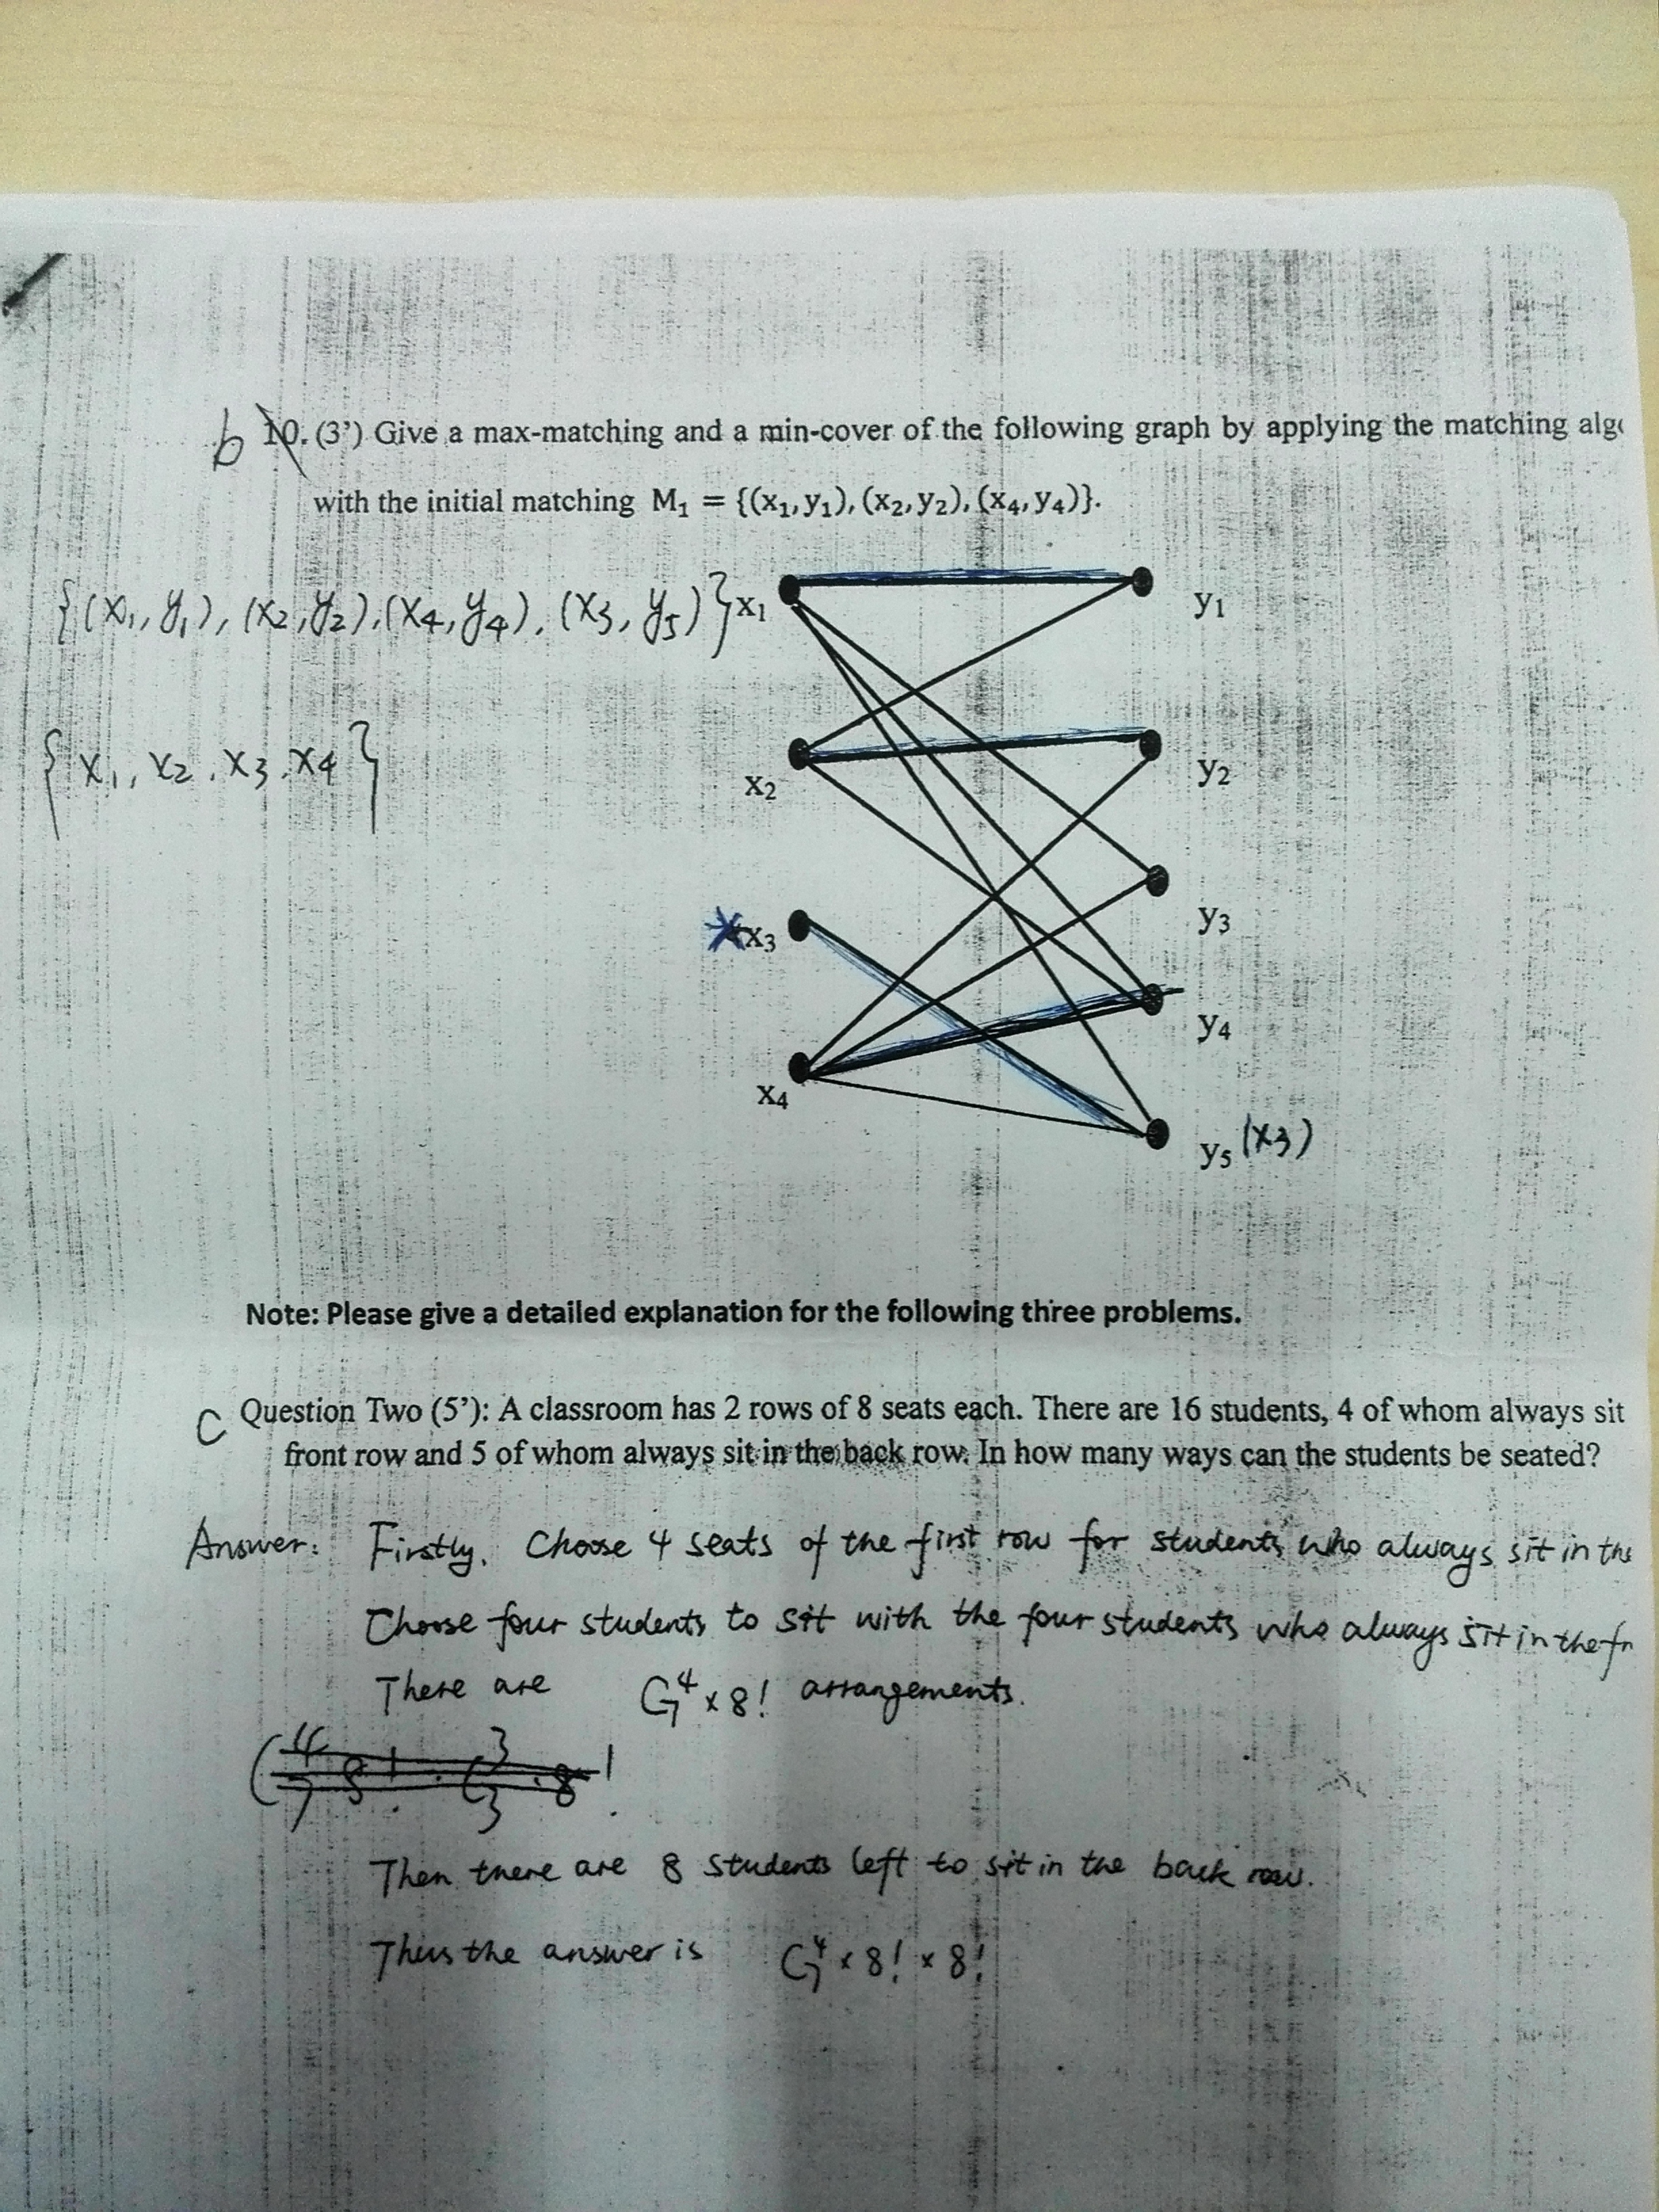 b 10. (3’) Give a max-matching and a min-cover of the following graph by applying the matching algo
with the initial matching M₁ = {(x₁,y₁),(x₂,y₂),(x₄,y₄)}.
{(x₁,y₁),(x₂,y₂),(x₄,y₄),(x₃,y₅)}
x₁ y₁
{x₁,x₂,x₃,x₄}
x₂ y₂
x₃ y₃
y₄
x₄
y₅ (x₃)
Note: Please give a detailed explanation for the following three problems.
C Question Two (5’): A classroom has 2 rows of 8 seats each. There are 16 students, 4 of whom always sit
front row and 5 of whom always sit in the back row. In how many ways can the students be seated?
Answer: Firstly. Choose 4 seats of the first row for students who always sit in the
Choose four students to sit with the four students who always sit in the fr
There are C₇⁴ × 8! arrangements.
Then there are 8 students left to sit in the back row.
Thus the answer is C₇⁴ × 8! × 8!